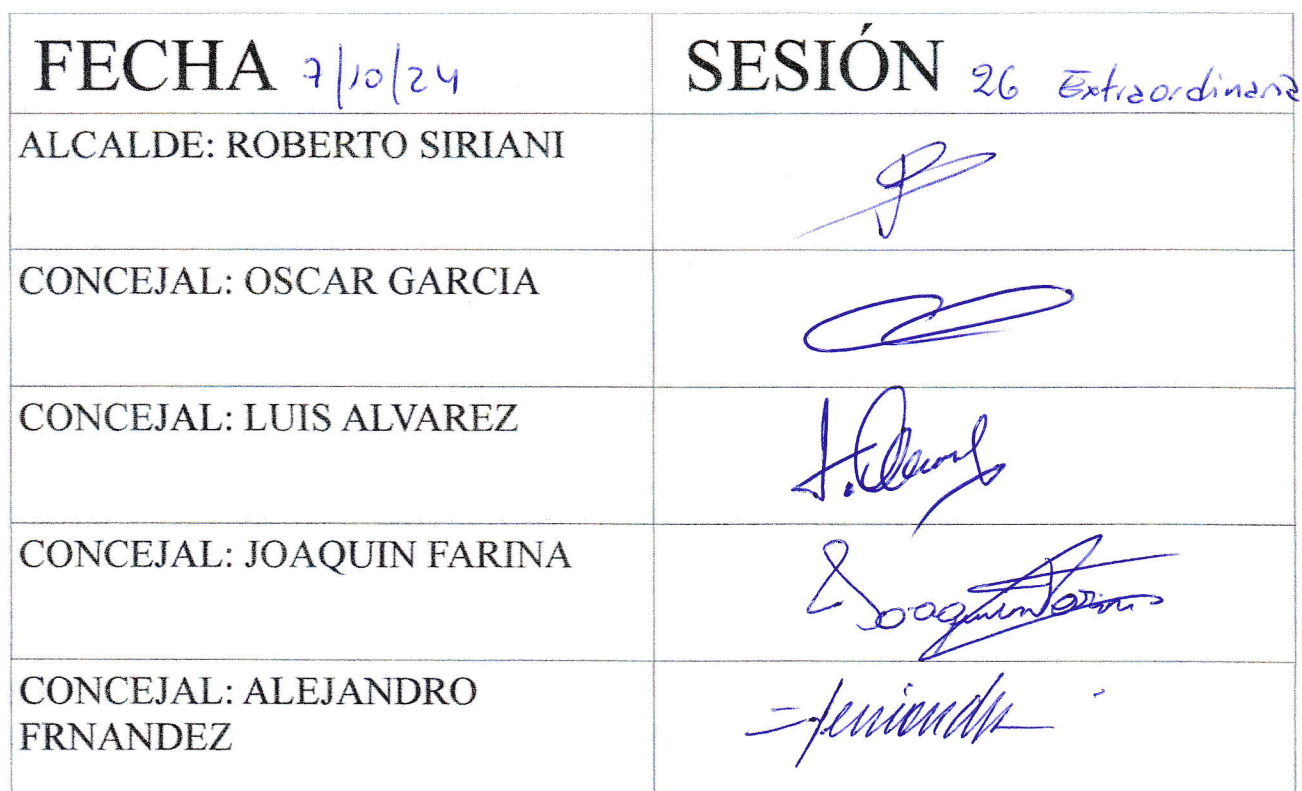 FECHA 7/10/24
SESIÓN 26 Extraordinaria
ALCALDE: ROBERTO SIRIANI
CONCEJAL: OSCAR GARCIA
CONCEJAL: LUIS ALVAREZ
CONCEJAL: JOAQUIN FARINA
Joaquin Farina
CONCEJAL: ALEJANDRO
FRNANDEZ